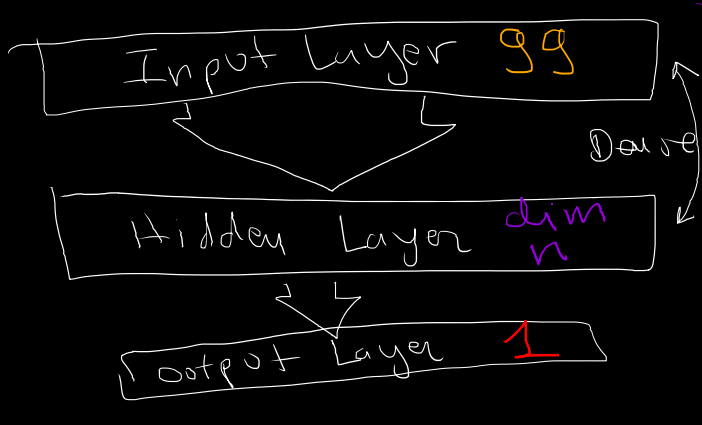 Input Layer 99
Dense
Hidden Layer dim
n
output Layer 1